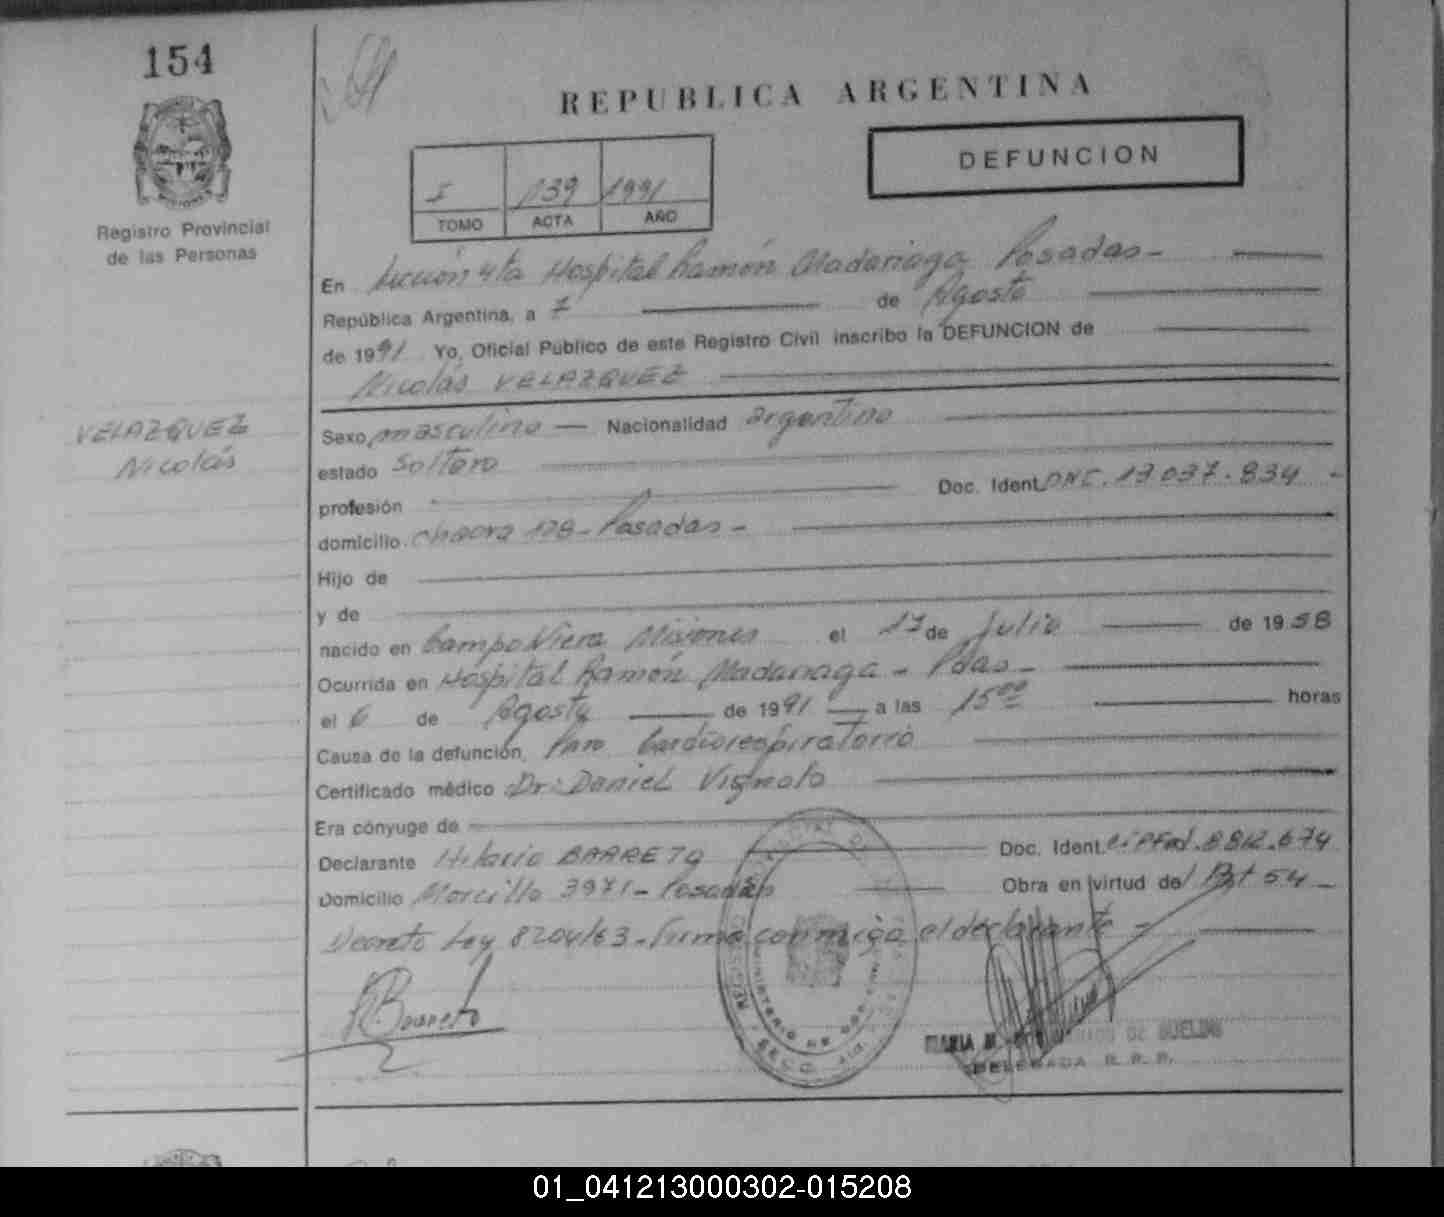 154
Registro Provincial
de las Personas
VELAZQUEZ
Nicolás
REPUBLICA ARGENTINA
DEFUNCION
I 139 1991
TOMO ACTA AÑO
En Sección 4ta Hospital Ramón Madariaga Posadas-
República Argentina, a 7 de Agosto
de 1991 Yo, Oficial Público de este Registro Civil inscribo la DEFUNCION de
Nicolás VELAZQUEZ
Sexo masculino — Nacionalidad argentino
estado Soltero
profesión Doc. Ident. DNI. 13.037.834 -
domicilio. chacra 128 - Posadas -
Hijo de
y de
nacido en Campo Viera Misiones el 17 de Julio de 1958
Ocurrida en Hospital Ramón Madariaga - Pdas -
el 6 de Agosto de 1991 a las 15 00 horas
Causa de la defunción, Paro Cardiorespiratorio
Certificado médico Dr. Daniel Vignolo
Era cónyuge de
Declarante Hilario BARRETO Doc. Ident. 8.812.674
Domicilio Morcillo 3971 - Posadas Obra en virtud del Art 54 -
Decreto Ley 8204/63 - Firma conmigo el declarante -
Barreto
MINISTERIO DE
MARIA DE
DELEGADA R. P. P.
01_041213000302-015208